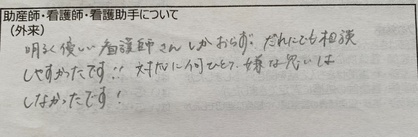 助産師・看護師・看護助手について
(外来)
明るく優しい看護師さんしかおらず、だれにでも相談
しやすかったです!! 対応に何ひとつ、嫌な思いは
しなかったです!